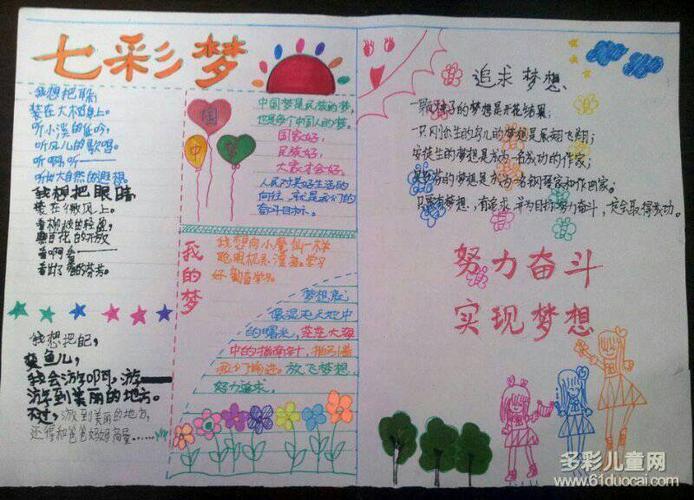 七彩梦
我想把眼睛
装在大树上。
听小溪的低吟,
听风儿的歌唱。
听啊听——
听大自然的遐想。
我想把眼睛
装在
看百花的开放
看啊看——
看出了
我想把
变鱼儿,
我会游啊,游——
游到美丽的地方。
不过,游到美丽的地方,
还得和爸爸妈妈商量……
中国梦
中国梦是民族的梦,
也是每个中国人的梦。
国家好,
民族好,
大家才会好。
人民对美好生活的
向往,就是我们的
奋斗目标。
我的梦
我想向小魔仙一样
聪明机灵漂亮。学习
好
梦想是
的曙光,茫茫大海
中的指南针,指引着
我们前进。放飞梦想,
努力追求。
追求梦想
一颗种子的梦想是开花结果;
一只刚出生的鸟儿的梦想是展翅飞翔;
安徒生的梦想是成为一名成功的作家;
的梦想是成为一名钢琴家和作曲家。
只要有梦想、有追求、并为目标努力奋斗,一定会取得成功。
努力奋斗
实现梦想
多彩儿童网
www.61duocai.com